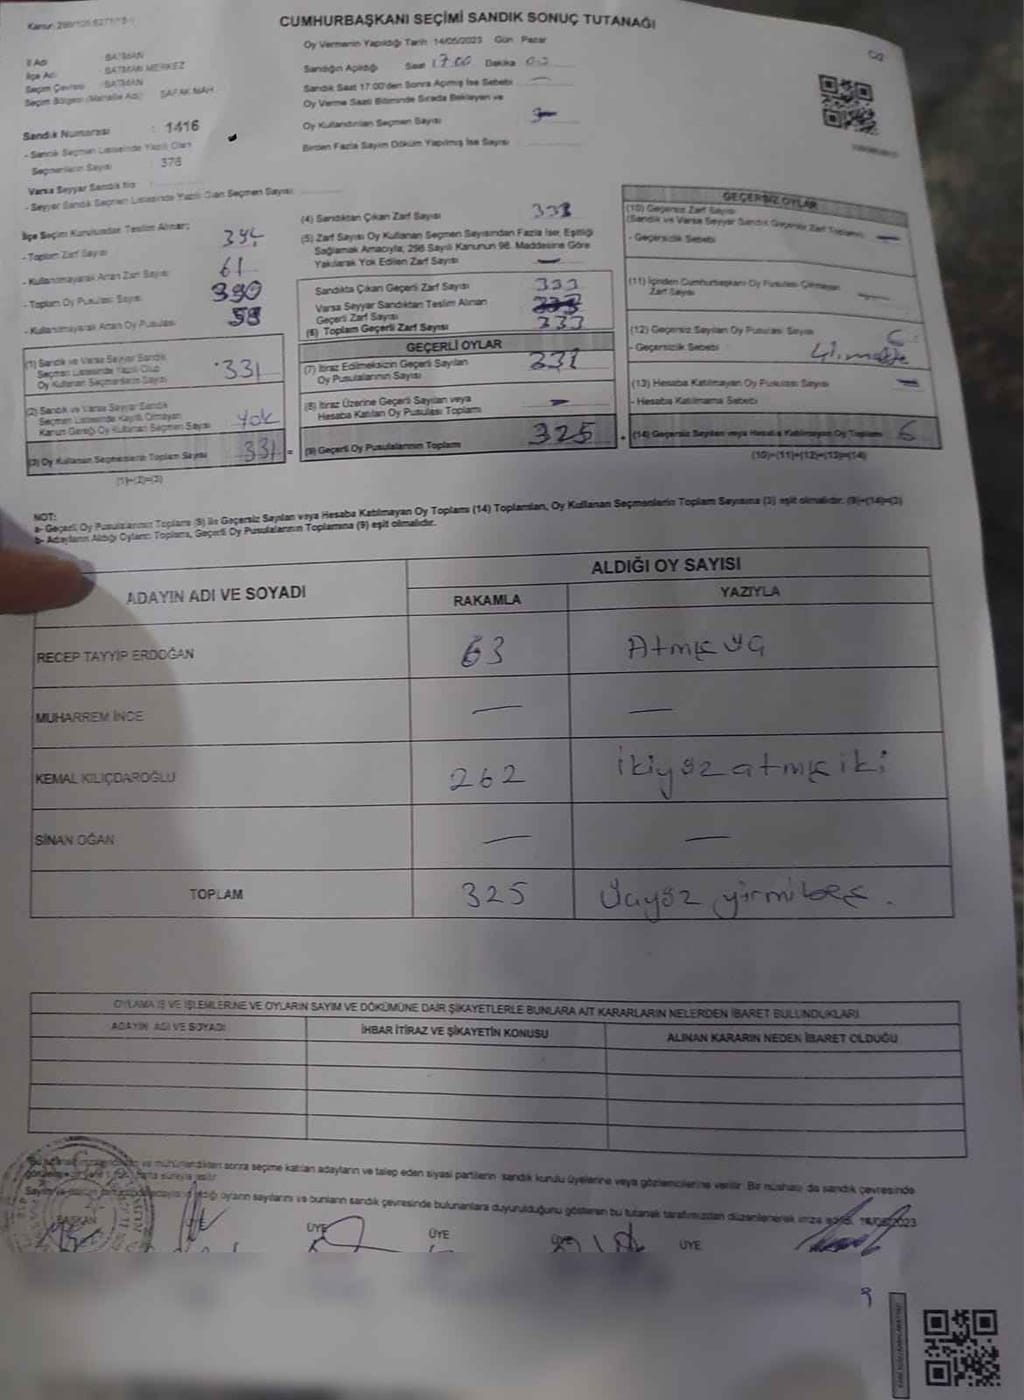 CUMHURBAŞKANI SEÇİMİ SANDIK SONUÇ TUTANAĞI
Oy Vermenin Yapıldığı Tarih 14/05/2023 Gün Pazar
Sandığın Açıldığı Saat 17.00 Dakika
Sandık Saat 17:00'den Sonra Açılmış İse Sebebi
Oy Verme Saati Bitiminde Sırada Bekleyen ve
Oy Kullandırılan Seçmen Sayısı
Birden Fazla Sayım Döküm Yapılmış İse Sayısı
İl Adı : BATMAN
İlçe Adı : BATMAN MERKEZ
Seçim Çevresi : BATMAN
Seçim Bölgesi (Mahalle Adı) : SAFAK MAH.
Sandık Numarası : 1416
- Sandık Seçmen Listesinde Yazılı Olan
Seçmenlerin Sayısı : 378
Varsa Seyyar Sandık No
- Seyyar Sandık Seçmen Listesinde Yazılı Olan Seçmen Sayısı
İlçe Seçim Kurulundan Teslim Alınan;
- Toplam Zarf Sayısı
- Kullanılmayarak Artan Zarf Sayısı 61
- Toplam Oy Pusulası Sayısı 390
- Kullanılmayarak Artan Oy Pusulası
(1) Sandık ve Varsa Seyyar Sandık
Seçmen Listesinde Yazılı Olup
Oy Kullanan Seçmenlerin Sayısı 331
(2) Sandık ve Varsa Seyyar Sandık
Seçmen Listesinde Kayıtlı Olmayan
Kanun Gereği Oy Kullanan Seçmen Sayısı Yok
(3) Oy Kullanan Seçmenlerin Toplam Sayısı 331 =
(1)+(2)=(3)
(4) Sandıktan Çıkan Zarf Sayısı
(5) Zarf Sayısı Oy Kullanan Seçmen Sayısından Fazla İse, Eşitliği
Sağlamak Amacıyla, 298 Sayılı Kanunun 98. Maddesine Göre
Yakılarak Yok Edilen Zarf Sayısı
Sandıkta Çıkan Geçerli Zarf Sayısı
Varsa Seyyar Sandıktan Teslim Alınan
Geçerli Zarf Sayısı
(6) Toplam Geçerli Zarf Sayısı
GEÇERLİ OYLAR
(7) İtiraz Edilmeksizin Geçerli Sayılan
Oy Pusulalarının Sayısı
(8) İtiraz Üzerine Geçerli Sayılan veya
Hesaba Katılan Oy Pusulası Toplamı
(9) Geçerli Oy Pusulalarının Toplamı 325 +
GEÇERSİZ OYLAR
(10) Geçersiz Zarf Sayısı
(Sandık ve Varsa Seyyar Sandık Geçersiz Zarf Toplamı)
- Geçersizlik Sebebi
(11) İçinden Cumhurbaşkanı Oy Pusulası Çıkmayan
Zarf Sayısı
(12) Geçersiz Sayılan Oy Pusulası Sayısı 6
- Geçersizlik Sebebi
(13) Hesaba Katılmayan Oy Pusulası Sayısı
- Hesaba Katılmama Sebebi
(14) Geçersiz Sayılan veya Hesaba Katılmayan Oy Toplamı 6
(10)+(11)+(12)+(13)=(14)
NOT:
a- Geçerli Oy Pusulalarının Toplamı (9) ile Geçersiz Sayılan veya Hesaba Katılmayan Oy Toplamı (14) Toplamları, Oy Kullanan Seçmenlerin Toplam Sayısına (3) eşit olmalıdır. (9)+(14)=(3)
b- Adayların Aldığı Oyların Toplamı, Geçerli Oy Pusulalarının Toplamına (9) eşit olmalıdır.
ADAYIN ADI VE SOYADI
ALDIĞI OY SAYISI
RAKAMLA YAZIYLA
RECEP TAYYİP ERDOĞAN 63 Atmış üç
MUHARREM İNCE — —
KEMAL KILIÇDAROĞLU 262 ikiyüz atmış iki
SİNAN OĞAN — —
TOPLAM 325 Üçyüz yirmibeş.
OYLAMA İŞ VE İŞLEMLERİNE VE OYLARIN SAYIM VE DÖKÜMÜNE DAİR ŞİKAYETLERLE BUNLARA AİT KARARLARIN NELERDEN İBARET BULUNDUKLARI
ADAYIN ADI VE SOYADI İHBAR İTİRAZ VE ŞİKAYETİN KONUSU ALINAN KARARIN NEDEN İBARET OLDUĞU
mühürlendikten sonra seçime katılan adayların ve talep eden siyasi partilerin sandık kurulu üyelerine veya gözlemcilerine verilir. Bir nüshası da sandık çevresinde
oyların sayılarını ve bunların sandık çevresinde bulunanlara duyurulduğunu gösteren bu tutanak tarafımızdan düzenlenerek imza edildi.
BAŞKAN ÜYE ÜYE ÜYE ÜYE